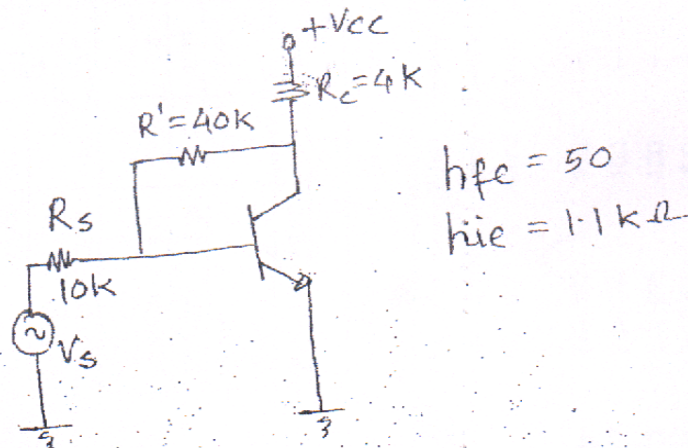 +Vcc
Rc=4K
R'=40K
hfe = 50
hie = 1.1 kΩ
Rs
10K
Vs